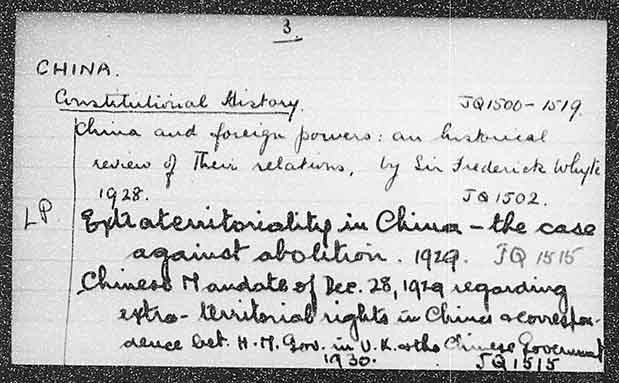 3.
CHINA.
Constitutional History. JQ1500-1519.
China and foreign powers: an historical
review of Their relations, by Sir Frederick Whyte
1928. JQ1502.
LP. Extraterritoriality in China - the case
against abolition. 1929. JQ 1515
Chinese Mandate of Dec. 28, 1929 regarding
extra-territorial rights in China & correspon-
dence bet. H.M. Gov. in U.K. & the Chinese Government
1930. JQ1515